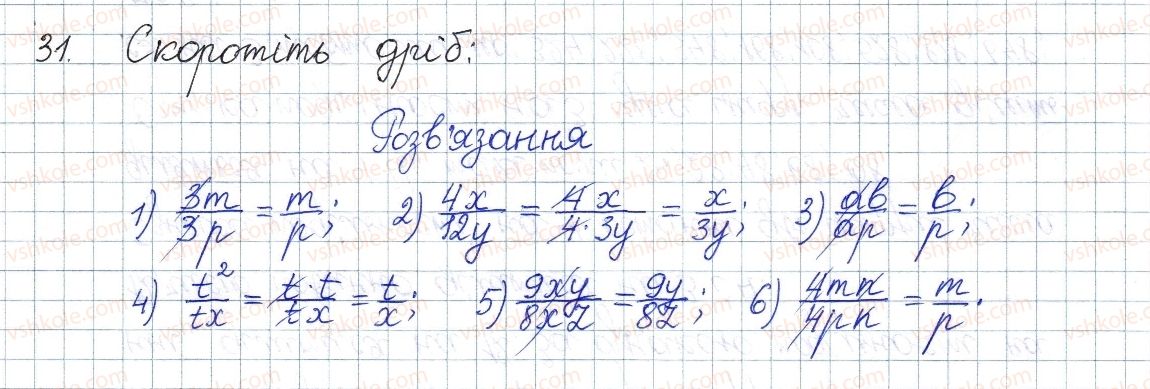 31. Скоротіть дріб:
Розв'язання
1) 3m/3p = m/p; 2) 4x/12y = 4x/4·3y = x/3y; 3) ab/ap = b/p;
4) t²/tx = t·t/tx = t/x; 5) 9xy/8xz = 9y/8z; 6) 4mk/4pk = m/p.